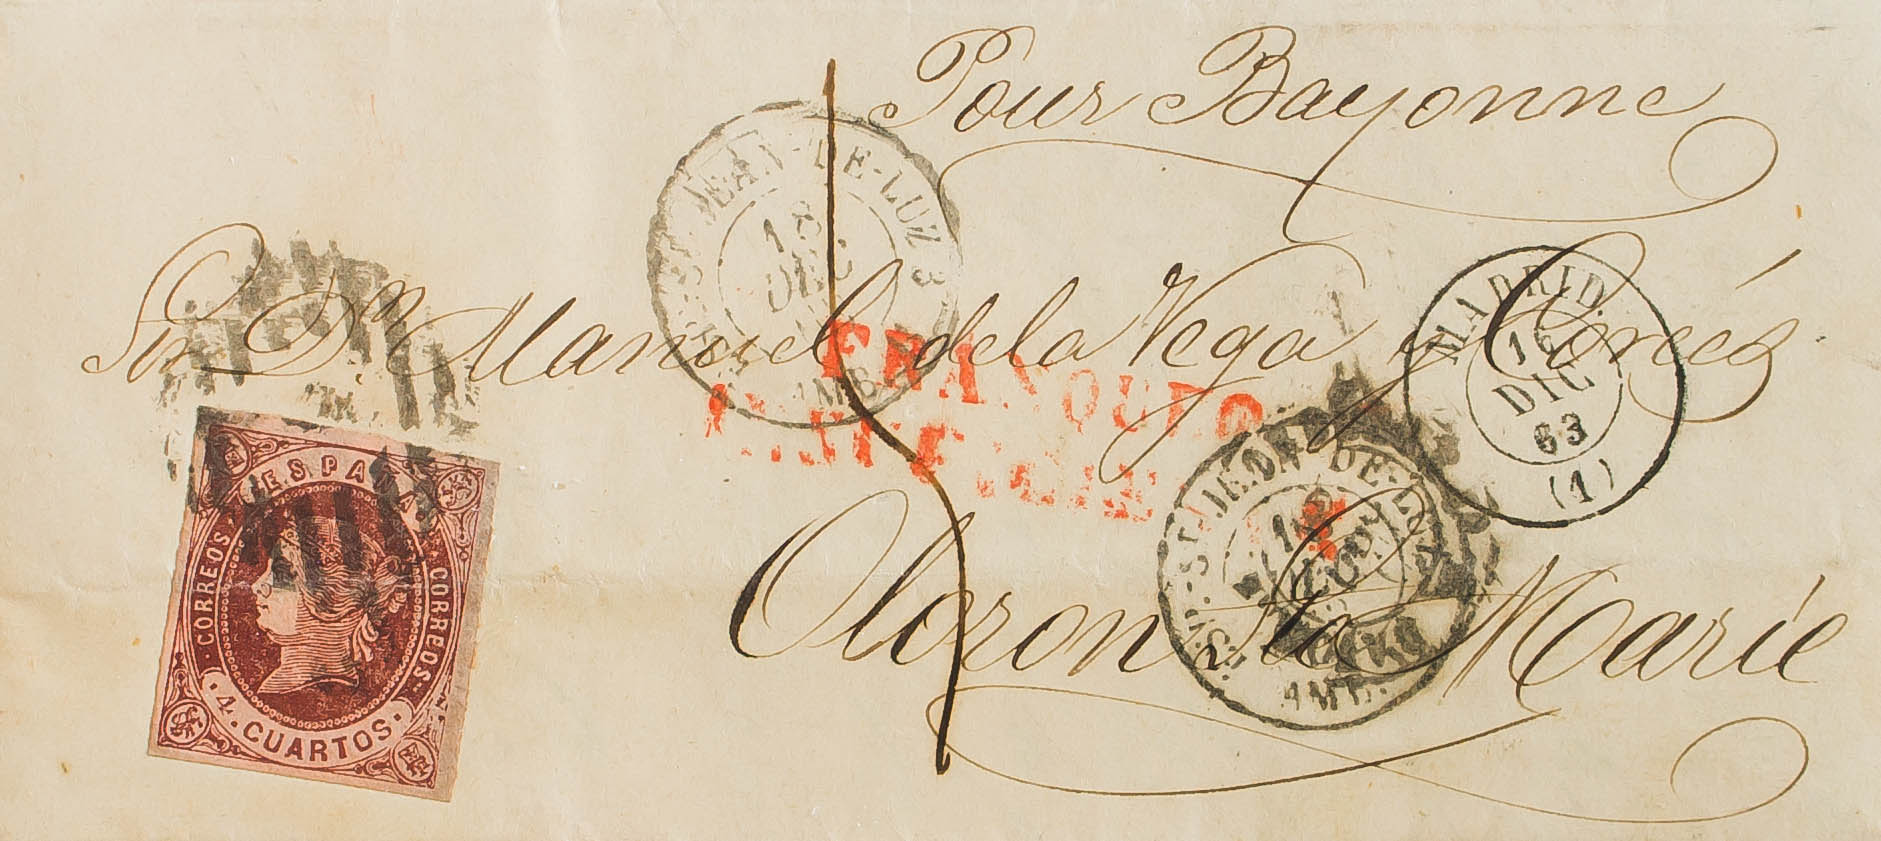 Pour Bayonne
Sor. Dn. Manuel de la Vega y Cortés
Oloron Ste Marie
ST-JEAN-DE-LUZ 3
18
DEC
AMB
MADRID.
16
DIC
63
(1)
FRANQUEO
ST-JEAN-DE-LUZ
18
AMB.
ESPAÑA
CORREOS
CORREOS
4. CUARTOS.